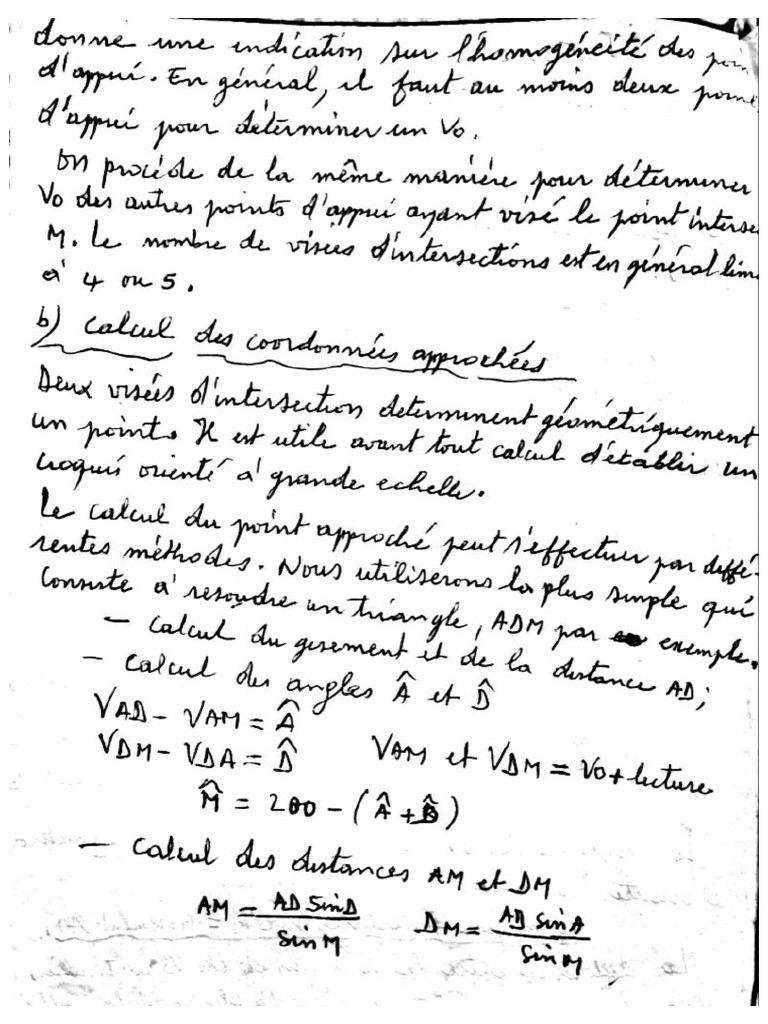 donne une indication sur l'homogénéité des poin
d'appui. En général, il faut au moins deux poin
d'appui pour déterminer un Vo.
On procède de la même manière pour déterminer
Vo des autres points d'appui ayant visé le point interse
M. Le nombre de visées d'intersections est en général lim
à 4 ou 5.
b) Calcul des coordonnées approchées
Deux visées d'intersection déterminent géométriquement
un point. Il est utile avant tout calcul d'établir un
croquis orienté à grande echelle.
Le calcul du point approché peut s'effectuer par diffé-
rentes méthodes. Nous utiliserons la plus simple qui
consiste à resoudre un triangle, ADM par exemple.
- Calcul du gisement et de la distance AD;
- Calcul des angles Â et D̂
VAD - VAM = Â
VDM - VDA = D̂ VAM et VDM = Vo + lecture
M̂ = 200 - (Â + D̂)
- Calcul des distances AM et DM
AM = AD sin D / sin M DM = AD sin A / sin M